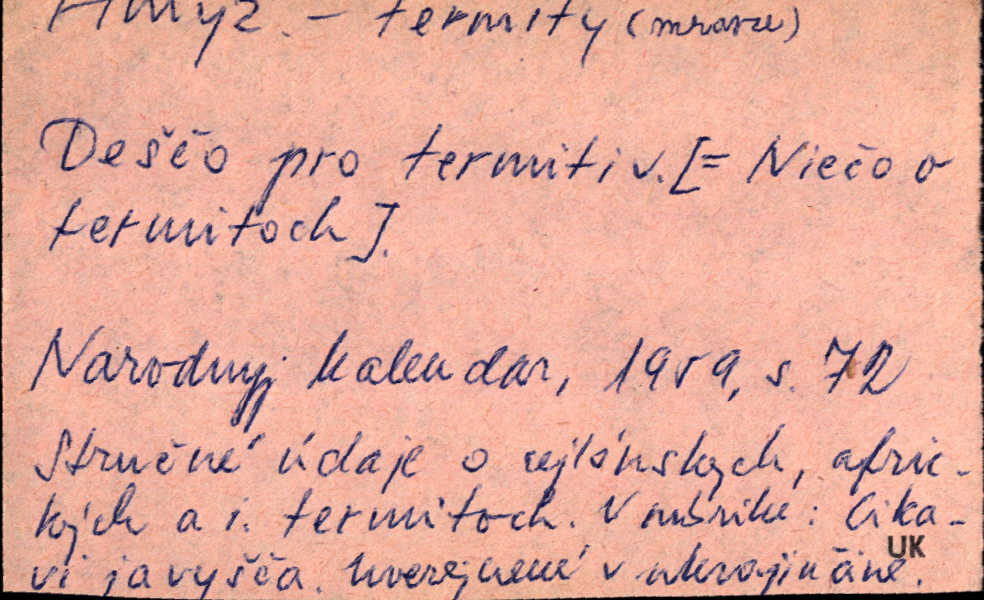 Hmyz. - termity (mravce)
Deščo pro termitiv. [= Niečo o
termitoch].
Narodnyj kalendar, 1959, s. 72
Stručné údaje o cejlónskych, afric-
kých a i. termitoch. V rubrike: Cika-
vi javyšča. Uverejnené v ukrajinčine.
UK